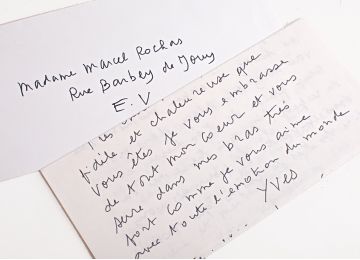 Madame Marcel Rochas
Rue Barbey de Jouy
E.V
fidèle et chaleureuse que
vous êtes je vous embrasse
de tout mon coeur et vous
serre dans mes bras très
fort comme je vous aime
avec toute l'émotion du monde
Yves